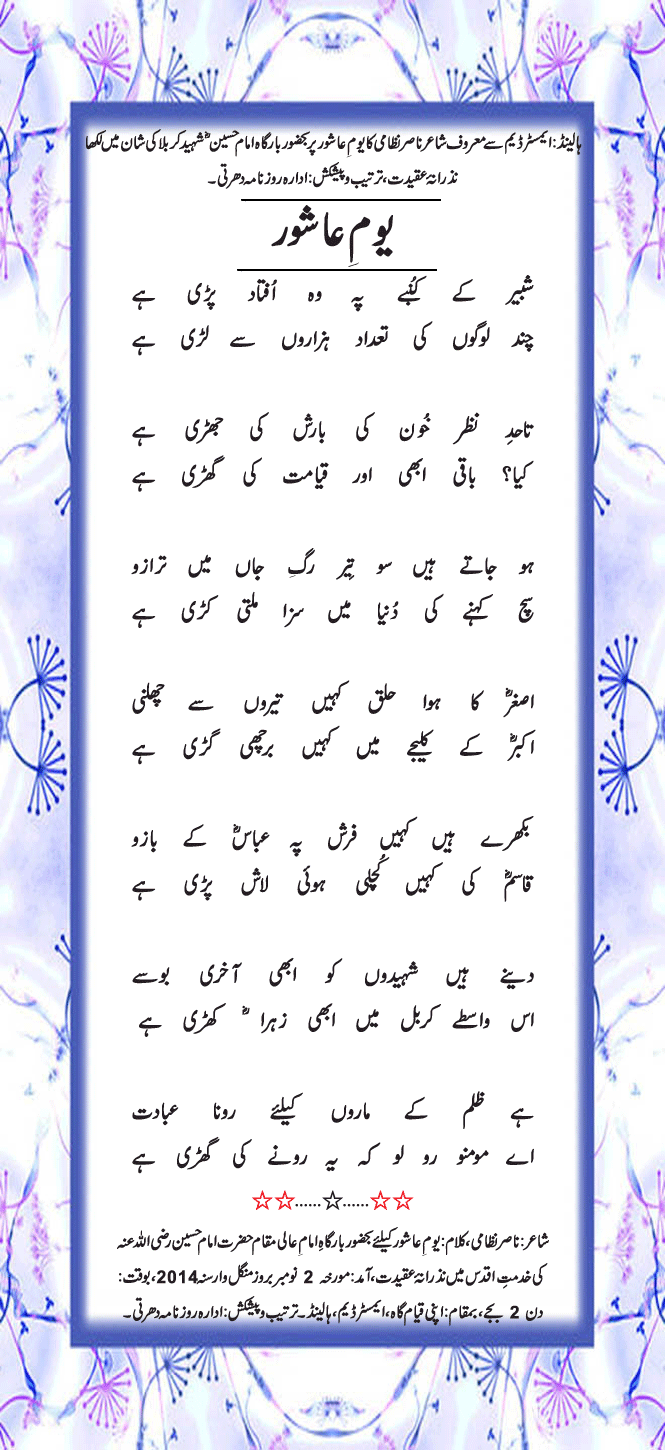 ہالینڈ: ایمسٹرڈیم سے معروف شاعر ناصر نظامی کا یومِ عاشور پر بحضور بارگاہ امام حسینؓ شہید کربلا کی شان میں لکھا
نذرانہ عقیدت، ترتیب و پیشکش: ادارہ روزنامہ دھرتی۔
یومِ عاشور
شبیر کے کُنبے پہ وہ اُفتاد پڑی ہے
چند لوگوں کی تعداد ہزاروں سے لڑی ہے
تاحدِ نظر خُون کی بارش کی جھڑی ہے
کیا؟ باقی ابھی اور قیامت کی گھڑی ہے
ہو جاتے ہیں سو تِیر رگِ جاں میں ترازو
سچ کہنے کی دُنیا میں سزا ملتی کڑی ہے
اصغرؓ کا ہوا حلق کہیں تیروں سے چھلنی
اکبرؓ کے کلیجے میں کہیں برچھی گڑی ہے
بکھرے ہیں کہیں فرش پہ عباسؓ کے بازو
قاسمؓ کی کہیں کُچلی ہوئی لاش پڑی ہے
دینے ہیں شہیدوں کو ابھی آخری بوسے
اس واسطے کربل میں ابھی زہرا ؓ کھڑی ہے
ہے ظلم کے ماروں کیلئے رونا عبادت
اے مومنو رو لو کہ یہ رونے کی گھڑی ہے
☆☆......☆......☆☆
شاعر: ناصر نظامی، کلام: یومِ عاشور کیلئے بحضور بارگاہِ امامِ عالی مقام حضرت امام حسین رضی اللہ عنہ
کی خدمتِ اقدس میں نذرانۂ عقیدت، آمد: مورخہ 2 نومبر بروز منگل وار سنہ 2014، بوقت:
دن 2 بجے، بمقام: اپنی قیام گاہ، ایمسٹرڈیم، ہالینڈ۔ ترتیب و پیشکش: ادارہ روزنامہ دھرتی۔